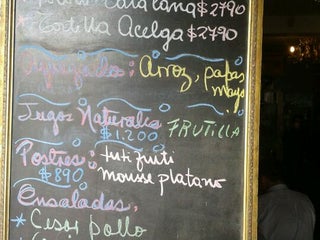 Catalana $2790
* Tortilla Acelga $2790
Agregados: Arroz, papas
mayo
Jugos Naturales
$1.200 FRUTILLA
Postres: tuti fruti
$890 mousse platano
Ensaladas,
* Cesar pollo